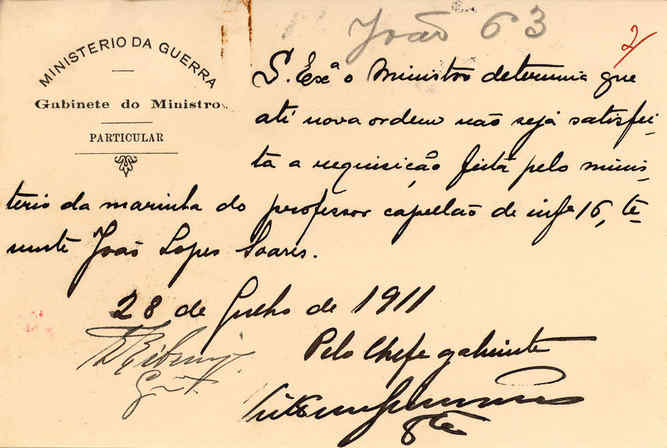 João 63
2/
MINISTERIO DA GUERRA
Gabinete do Ministro
PARTICULAR
S. Exª o Ministro determina que
até nova ordem não seja satisfei-
ta a requisição feita pelo minis-
terio da marinha do professor capellão de infª 16, te-
nente João Lopes Soares.
28 de Julho de 1911
Pelo Chefe gabinete